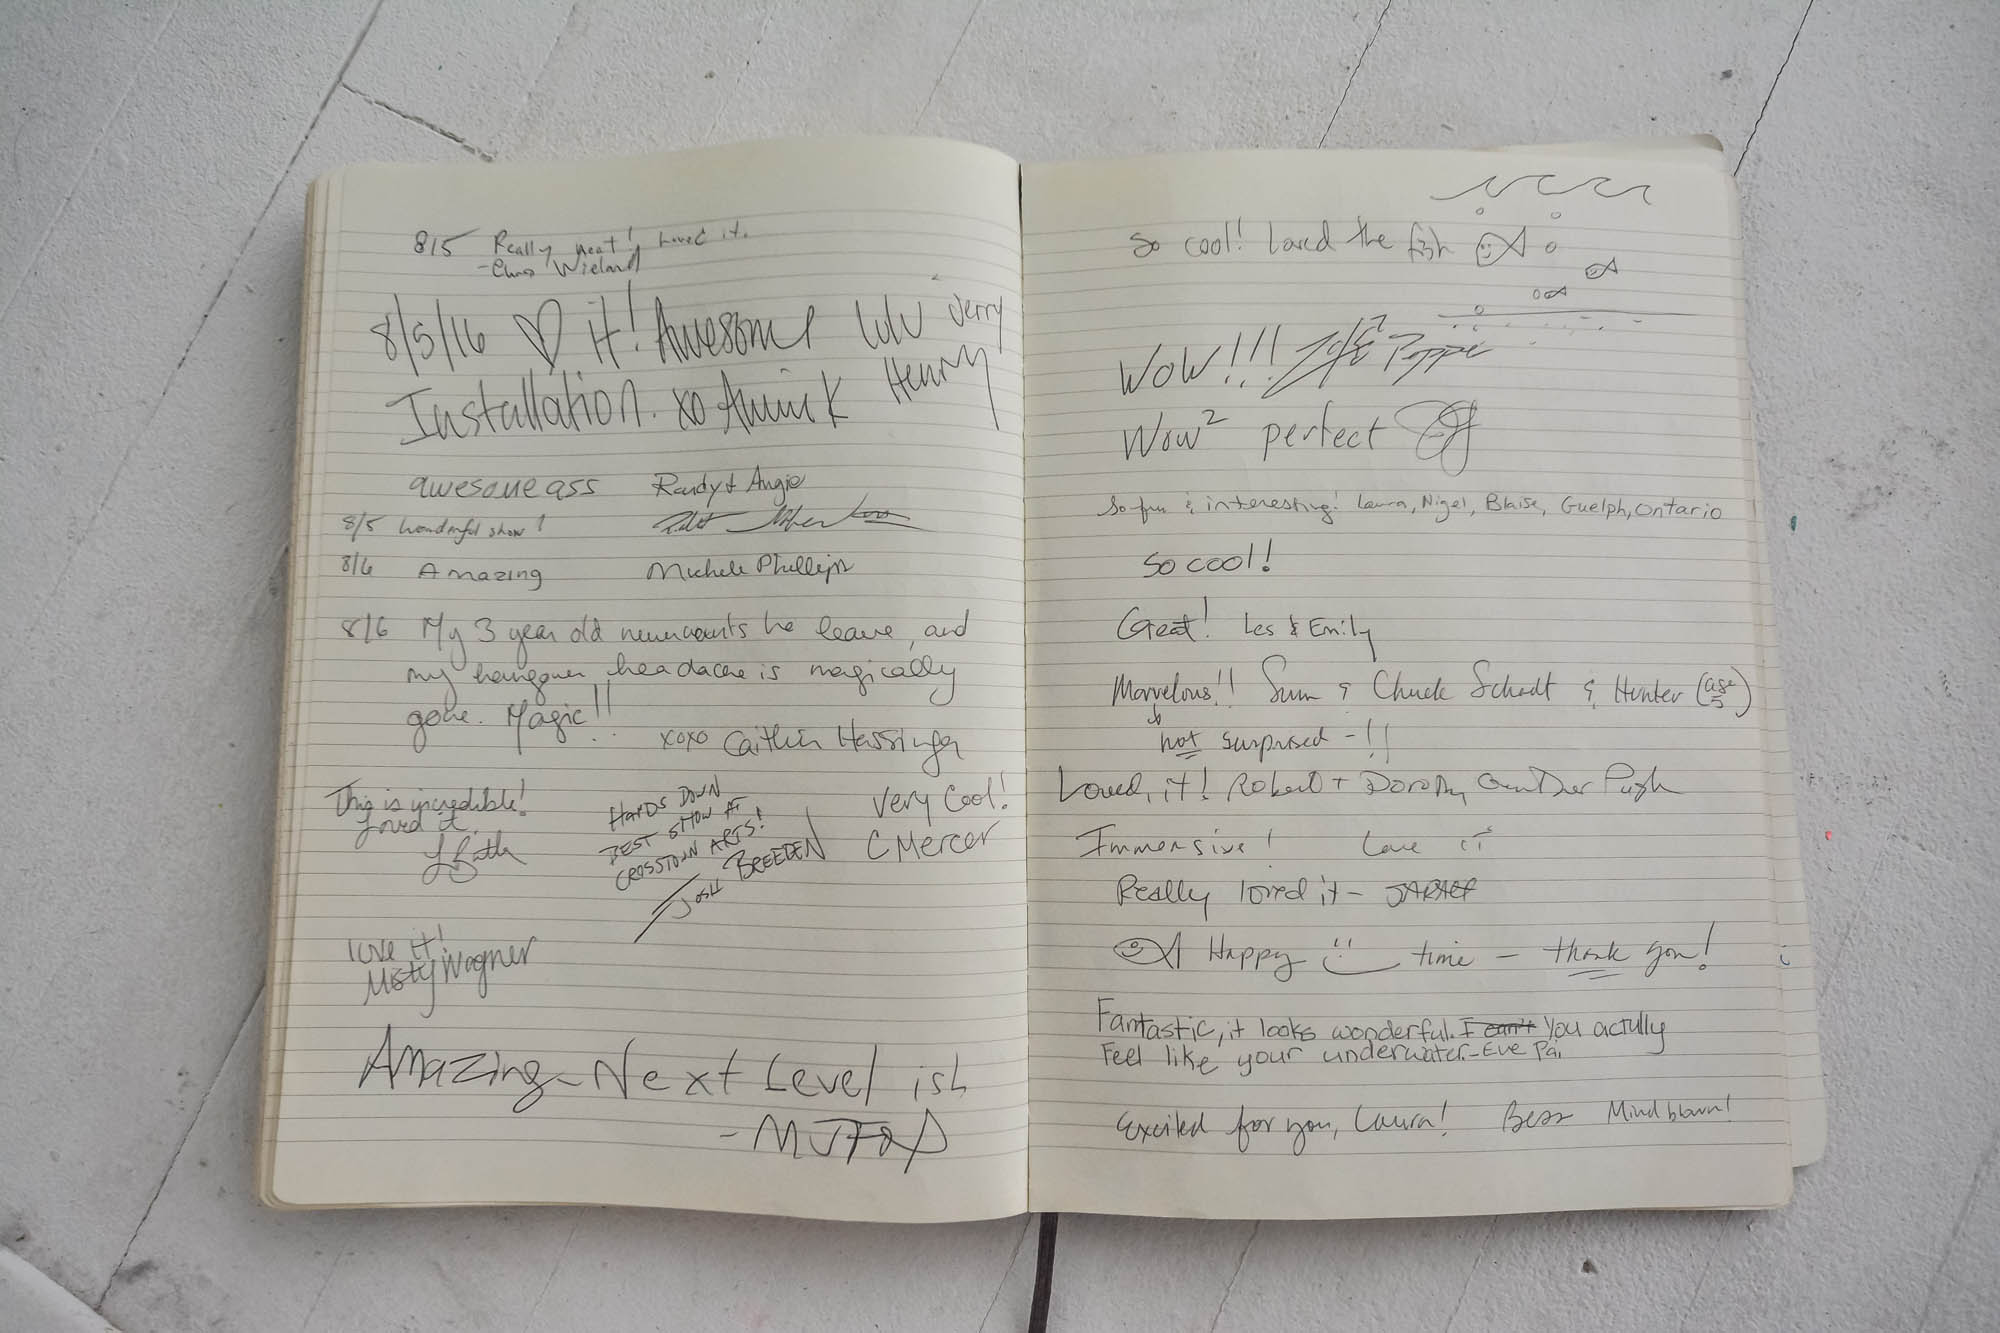 8/5 Really neat! Loved it.
- Wieland
8/5/16 ♡ it! Awesome Lulu Jerry
Installation. xo Henry
awesome ass Randy + Angie
8/5 Wonderful show!
8/6 Amazing Michele Phillips
8/6 My 3 year old he leave, and
my hangover headache is magically
gone. Magic!!
xoxo Caitlin
This is incredible!
Loved it.
HANDS DOWN
BEST SHOW AT
CROSSTOWN ARTS!
JOSH BREEDEN
Very Cool!
C Mercer
love it!
Misty Wagner
Amazing - Next Level ish
So cool! Loved the fish
WOW!!!
Wow² perfect
So fun & interesting! Laura, Nigel, Blaise, Guelph, Ontario
So cool!
Great! Les & Emily
Marvelous!! & Chuck Schadt & Hunter (age 5)
not surprised - !!
Loved it! Robert + Dorothy
Immersive! Love it
Really loved it -
Happy time - thank you!
Fantastic, it looks wonderful. I can't You actully
Feel like your underwater. - Eve Pa.
Excited for you, Laura! Mind blown!